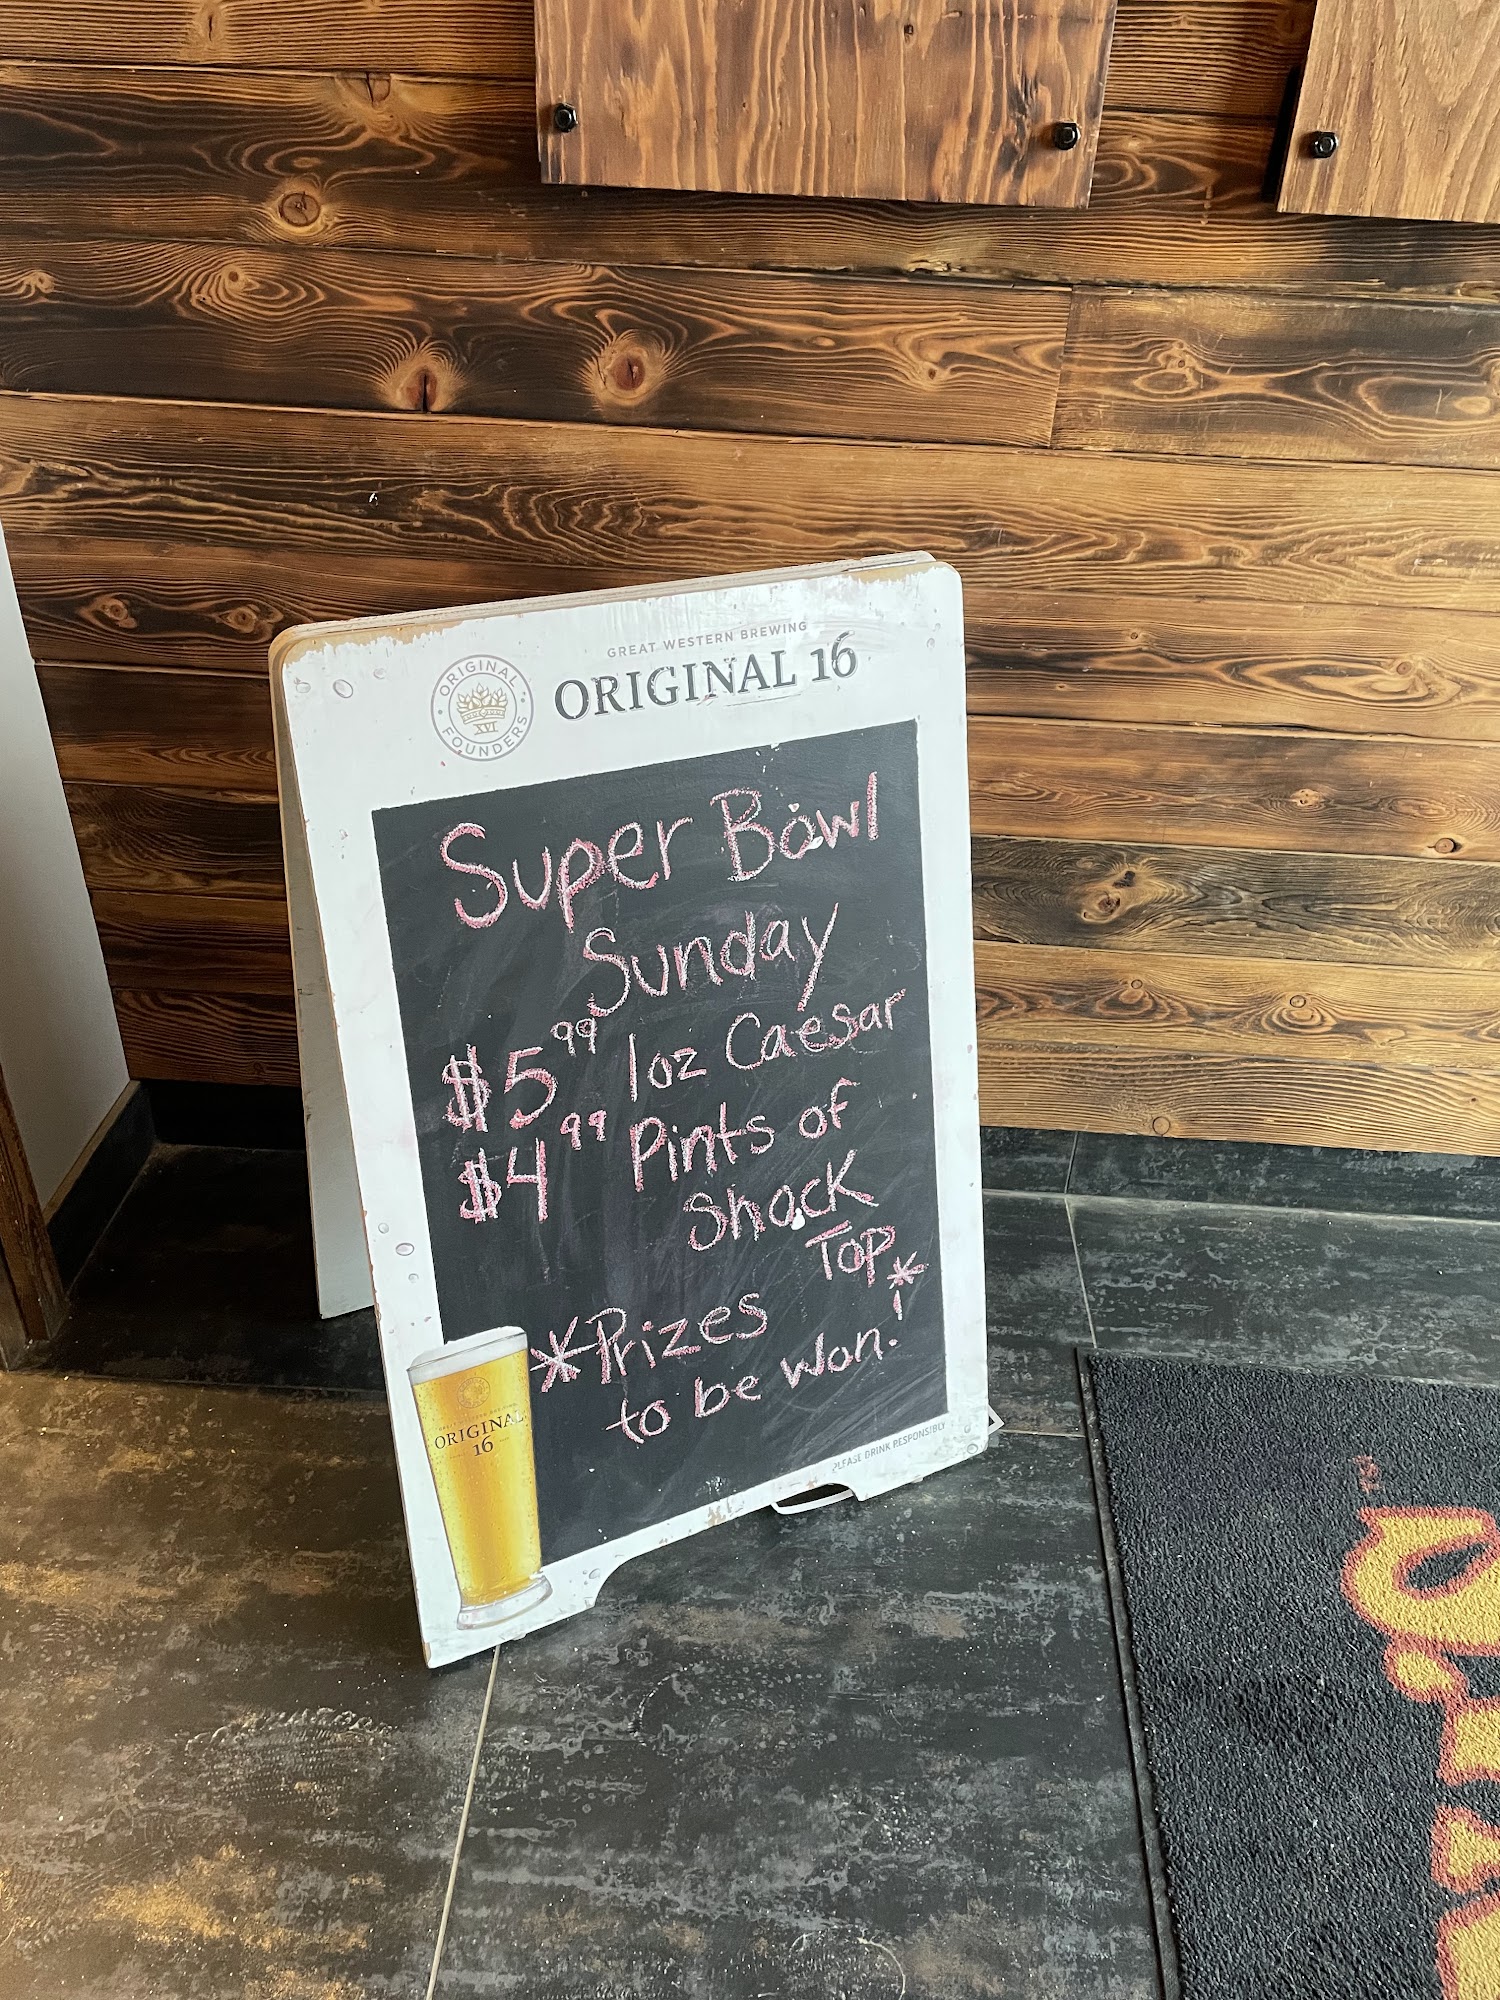 GREAT WESTERN BREWING
ORIGINAL 16
ORIGINAL
XVI
FOUNDERS
Super Bowl
Sunday
$5 99 1oz Caesar
$4 99 Pints of
Shock
Top*
*Prizes
to be won!
ORIGINAL
16
PLEASE DRINK RESPONSIBLY